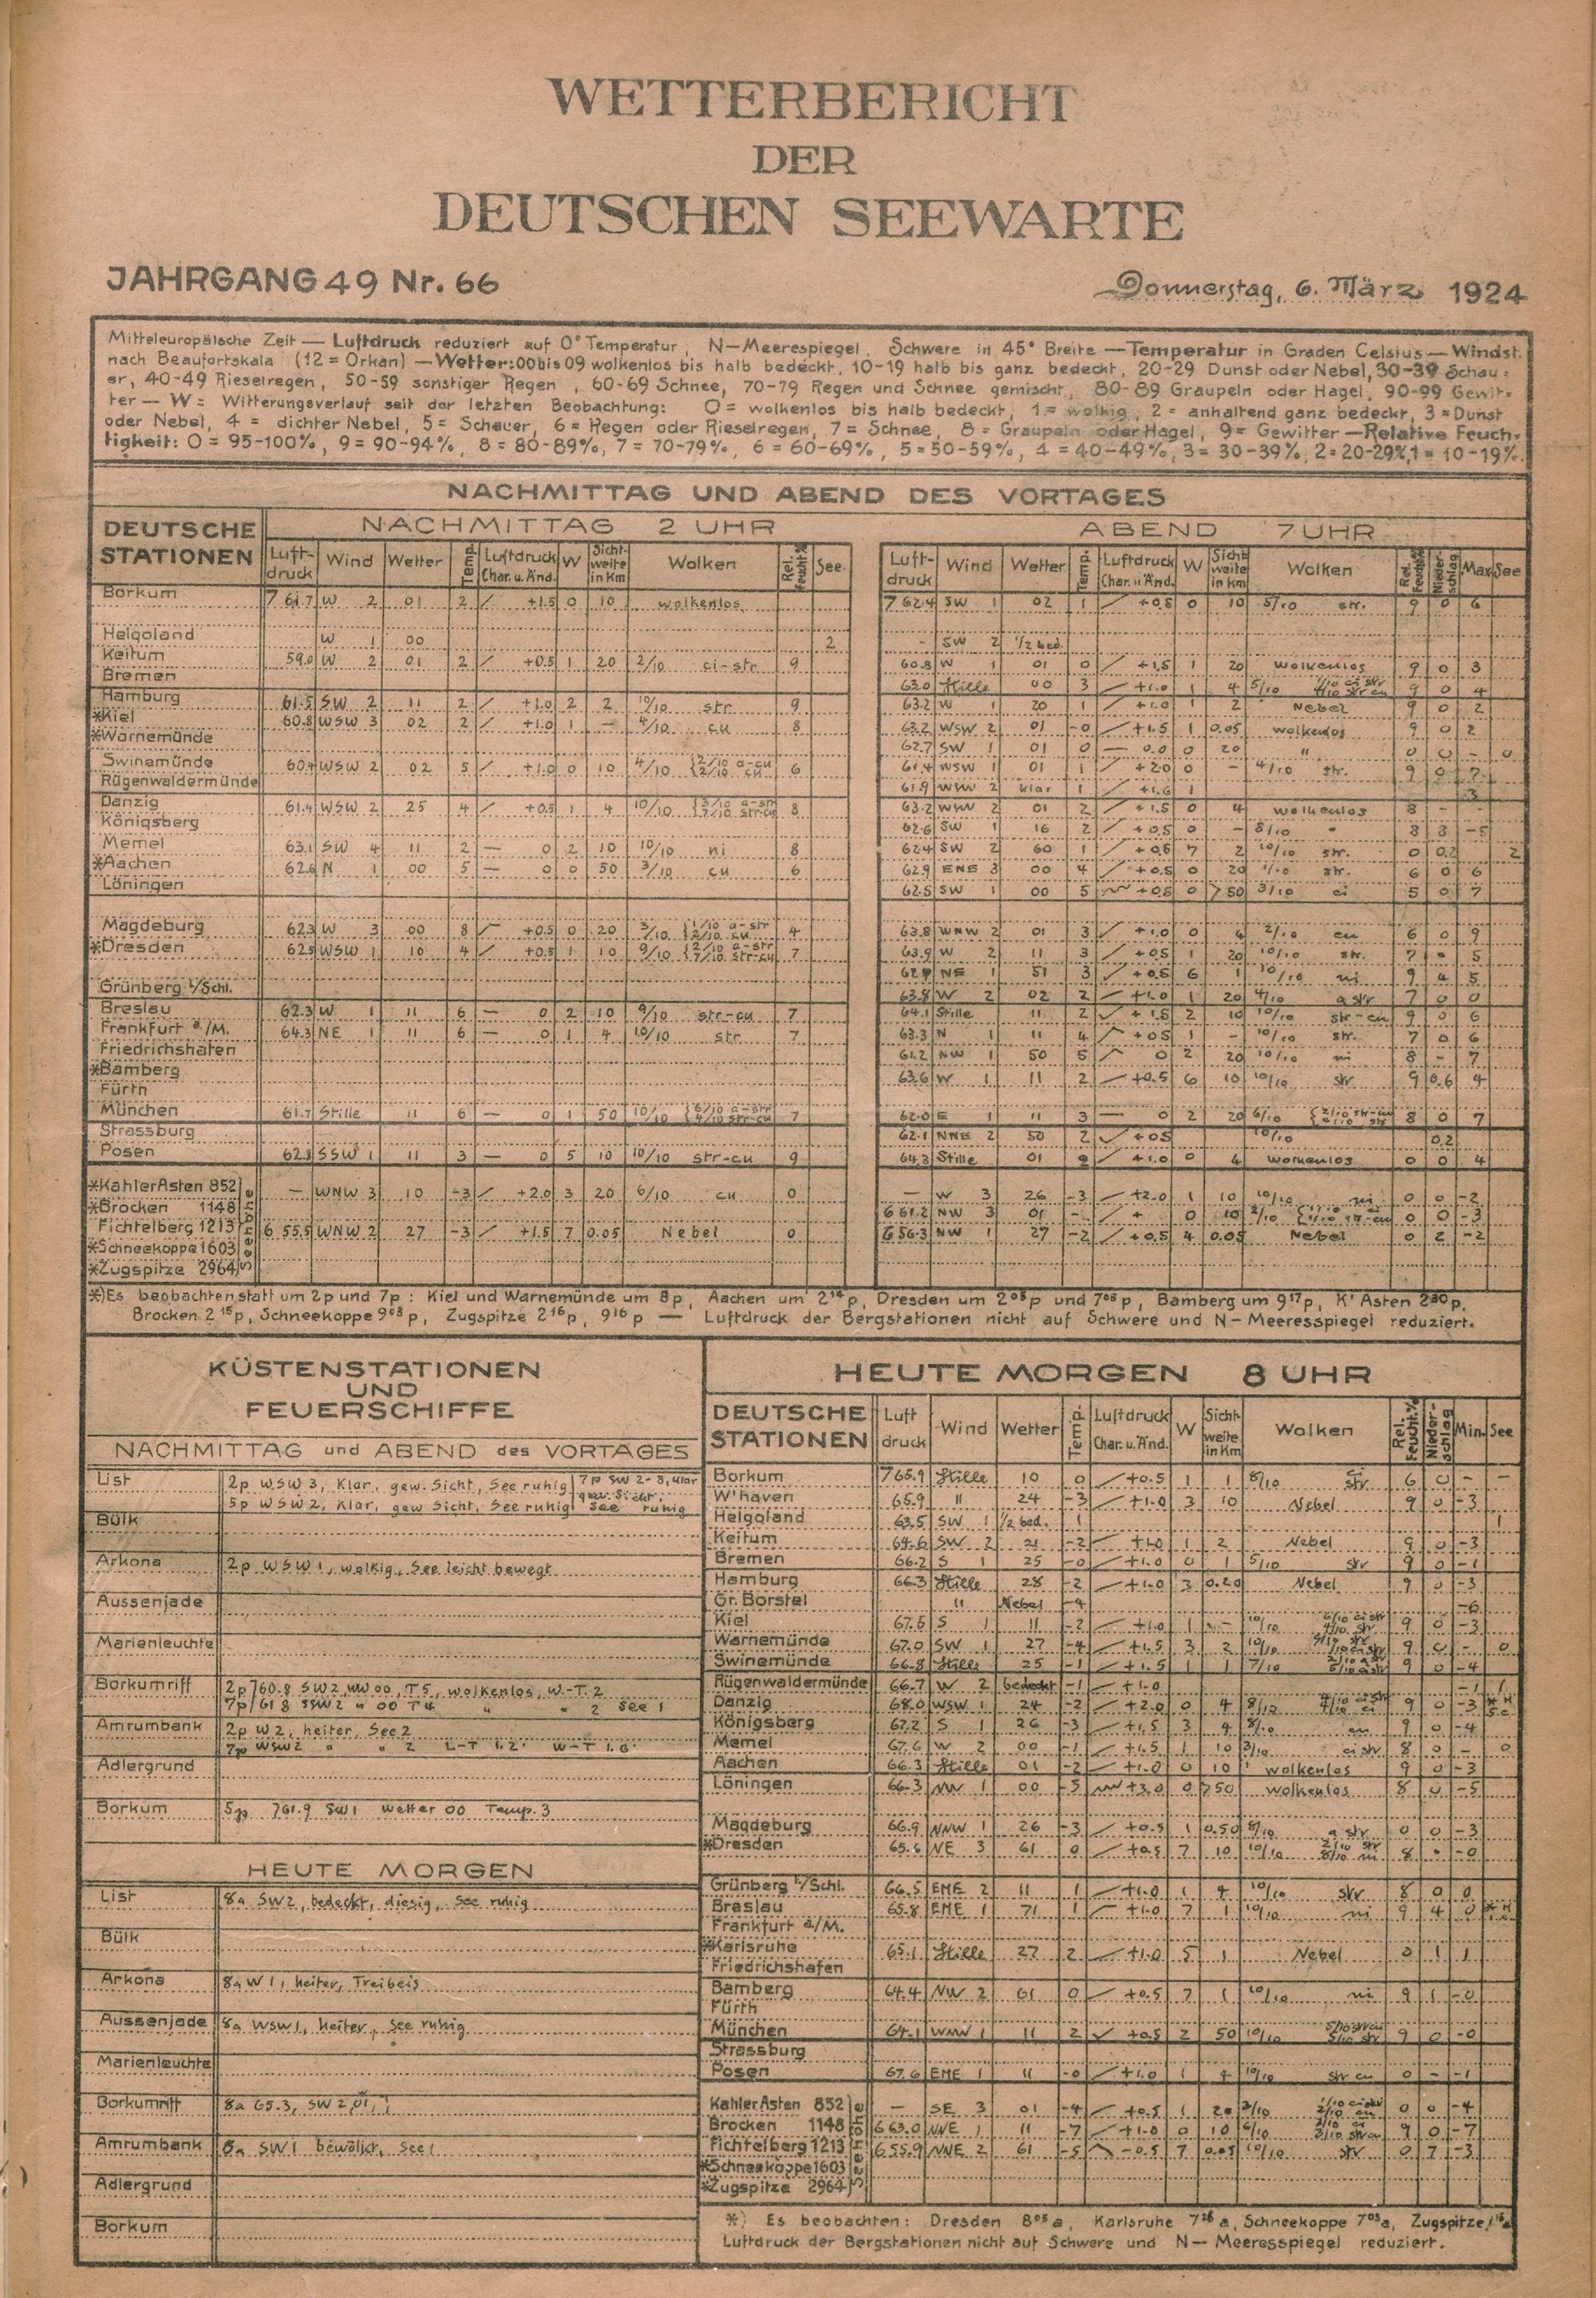 WETTERBERICHT
DER
DEUTSCHEN SEEWARTE
JAHRGANG 49 Nr. 66
Donnerstag, 6. März 1924
Mitteleuropäische Zeit — Luftdruck reduziert auf 0° Temperatur, N—Meerespiegel, Schwere in 45° Breite — Temperatur in Graden Celsius — Windst.
nach Beaufortskala (12 = Orkan) — Wetter: 00 bis 09 wolkenlos bis halb bedeckt, 10-19 halb bis ganz bedeckt, 20-29 Dunst oder Nebel, 30-39 Schau=
er, 40-49 Rieselregen, 50-59 sonstiger Regen, 60-69 Schnee, 70-79 Regen und Schnee gemischt, 80-89 Graupeln oder Hagel, 90-99 Gewit=
ter — W = Witterungsverlauf seit der letzten Beobachtung: 0 = wolkenlos bis halb bedeckt, 1 = wolkig, 2 = anhaltend ganz bedeckt, 3 = Dunst
oder Nebel, 4 = dichter Nebel, 5 = Schauer, 6 = Regen oder Rieselregen, 7 = Schnee, 8 = Graupeln oder Hagel, 9 = Gewitter — Relative Feuch=
tigkeit: 0 = 95-100%, 9 = 90-94%, 8 = 80-89%, 7 = 70-79%, 6 = 60-69%, 5 = 50-59%, 4 = 40-49%, 3 = 30-39%, 2 = 20-29%, 1 = 10-19%.
NACHMITTAG UND ABEND DES VORTAGES
DEUTSCHE STATIONEN
NACHMITTAG 2 UHR
Luft-druck Wind Wetter Temp. Luftdruck Char. u. Änd. W Sicht-weite in Km Wolken Rel. Feucht.% See
Borkum 761.7 W 2 01 2 +1.5 0 10 wolkenlos
Helgoland W 1 00 2
Keitum 59.0 W 2 01 2 +0.5 1 20 2/10 ci-str 9
Bremen
Hamburg 61.5 SW 2 11 2 +1.0 2 2 10/10 str 9
*Kiel 60.8 WSW 3 02 2 +1.0 1 — 4/10 cu 8
*Warnemünde
Swinemünde 60.4 WSW 2 02 5 +1.0 0 10 4/10 2/10 a-cu 2/10 cu 6
Rügenwaldermünde
Danzig 61.4 WSW 2 25 4 +0.5 1 4 10/10 3/10 a-str 7/10 str-cu 8
Königsberg
Memel 63.1 SW 4 11 2 — 0 2 10 10/10 ni 8
*Aachen 62.6 N 1 00 5 — 0 0 50 3/10 cu 6
Löningen
Magdeburg 62.3 W 3 00 8 +0.5 0 20 3/10 1/10 a-str 2/10 cu 4
*Dresden 62.5 WSW 1 10 4 +0.5 1 10 9/10 2/10 a-str 7/10 str-cu 7
Grünberg i/Schl.
Breslau 62.3 W 1 11 6 — 0 2 10 9/10 str-cu 7
Frankfurt a/M. 64.3 NE 1 11 6 — 0 1 4 10/10 str 7
Friedrichshafen
*Bamberg
Fürth
München 61.7 Stille 11 6 — 0 1 50 10/10 6/10 a-str 4/10 str-cu 7
Strassburg
Posen 62.8 SSW 1 11 3 — 0 5 10 10/10 str-cu 9
*Kahler Asten 852 — WNW 3 10 -3 +2.0 3 20 6/10 cu 0
*Brocken 1148
Fichtelberg 1213 655.5 WNW 2 27 -3 +1.5 7 0.05 Nebel 0
*Schneekoppe 1603
*Zugspitze 2964
Seehöhe
ABEND 7 UHR
Luft-druck Wind Wetter Temp. Luftdruck Char. u. Änd. W Sicht-weite in km Wolken Rel. Feucht.% Nieder-schlag Max See
762.4 SW 1 02 1 +0.5 0 10 5/10 str. 9 0 6
- SW 2 1/2 bed.
60.8 W 1 01 0 +1.5 1 20 wolkenlos 9 0 3
63.0 Stille 00 3 +1.0 1 4 5/10 1/10 ci str 4/10 str cu 9 0 4
63.2 W 1 20 1 +1.0 1 2 Nebel 9 0 2
63.2 WSW 2 01 -0 +1.5 1 0.05 wolkenlos 9 0 2
62.7 SW 1 01 0 — 0.0 0 20 " 0 0 - 0
61.4 WSW 1 01 1 +2.0 0 - 4/10 str. 9 0 7
61.9 WSW 2 klar 1 +1.6 1 3
63.2 WSW 2 01 2 +1.5 0 4 wolkenlos 8 - -
62.6 SW 1 16 2 +0.5 0 - 8/10 " 8 3 -5
62.4 SW 2 60 1 +0.5 7 2 10/10 str. 0 0.2 2
62.9 ENE 3 00 4 +0.5 0 20 1/10 str. 6 0 6
62.5 SW 1 00 5 +0.5 0 >50 3/10 ci 5 0 7
63.8 WNW 2 01 3 +1.0 0 4 2/10 cu 6 0 9
63.9 W 2 11 3 +0.5 1 20 10/10 str. 7 • 5
NE 1 51 3 +0.5 6 1 10/10 ni 9 4 5
63.8 W 2 02 2 +1.0 1 20 4/10 a str 7 0 0
64.1 Stille 11 2 +1.5 2 10 10/10 str-cu 9 0 6
63.3 N 1 11 4 +0.5 1 - 10/10 str. 7 0 6
61.2 NW 1 50 5 0 2 20 10/10 ni 8 - 7
63.6 W 1 11 2 +0.5 6 10 10/10 str 9 0.6 4
62.0 E 1 11 3 — 0 2 20 6/10 8 0 7
62.1 NNE 2 50 2 +0.5 10/10 0.2
64.3 Stille 01 +1.0 0 4 wolkenlos 0 0 4
— W 3 26 -3 +2.0 1 10 10/10 ni 0 0 -2
661.2 NW 3 01 - + 0 10 2/10 0 0 -3
656.3 NW 1 27 -2 +0.5 4 0.05 Nebel 0 2 -2
*) Es beobachten statt um 2p und 7p: Kiel und Warnemünde um 8p, Aachen um 2 14 p, Dresden um 2 05 p und 7 05 p, Bamberg um 9 17 p, K' Asten 2 30 p,
Brocken 2 15 p, Schneekoppe 9 03 p, Zugspitze 2 16 p, 9 16 p — Luftdruck der Bergstationen nicht auf Schwere und N—Meeresspiegel reduziert.
KÜSTENSTATIONEN
UND
FEUERSCHIFFE
NACHMITTAG und ABEND des VORTAGES
List 2p WSW 3, Klar, gew. Sicht, See ruhig 7p SW 2-3, klar
5p WSW 2, Klar, gew Sicht, See ruhig gew. Sicht, See ruhig
Bülk
Arkona 2p WSW 1, wolkig, See leicht bewegt
Aussenjade
Marienleuchte
Borkumriff 2p 760.8 SW 2, WW 00, T 5, wolkenlos, W.-T. 2
7p 61.8 SSW 2 " 00 T 4 " " 2 See 1
Amrumbank 2p W 2, heiter, See 2
7p WSW 2 " " 2 L-T 1.2 W-T 1.6
Adlergrund
Borkum 5p 761.9 SW 1 Wetter 00 Temp. 3
HEUTE MORGEN
List 8a SW 2, bedeckt, diesig, See ruhig
Bülk
Arkona 8a W 1, heiter, Treibeis
Aussenjade 8a WSW 1, heiter, See ruhig
Marienleuchte
Borkumriff 8a 65.3, SW 2,
Amrumbank 8a SW 1 bewölkt, See 1
Adlergrund
Borkum
HEUTE MORGEN 8 UHR
DEUTSCHE STATIONEN Luft druck Wind Wetter Temp. Luftdruck Char. u. Änd. W Sicht-weite in Km Wolken Rel. Feucht.% Nieder-schlag Min. See
Borkum 765.9 Stille 10 0 +0.5 1 1 8/10 ci str 6 0 - -
W'haven 65.9 " 24 -3 +1.0 3 10 Nebel 9 0 -3
Helgoland 63.5 SW 1 1/2 bed. 1 1
Keitum 64.6 SW 2 21 -2 +1.0 1 2 Nebel 9 0 -3
Bremen 66.2 S 1 25 -0 +1.0 0 1 5/10 str 9 0 -1
Hamburg 66.3 Stille 28 -2 +1.0 3 0.20 Nebel 9 0 -3
Gr. Borstel " Nebel -4 -6
Kiel 67.5 S 1 11 -2 +1.0 1 - 10/10 9 0 -3
Warnemünde 67.0 SW 1 27 -4 +1.5 3 2 10/10 9 0 - 0
Swinemünde 66.8 Stille 25 -1 +1.5 1 1 7/10 9 0 -4
Rügenwaldermünde 66.7 W 2 bedeckt -1 +1.0 -1 1
Danzig 68.0 WSW 1 24 -2 +2.0 0 4 8/10 9 0 -3
Königsberg 67.2 S 1 26 -3 +1.5 3 4 8/10 cu 9 0 -4
Memel 67.6 W 2 00 -1 +1.5 1 10 3/10 ci str 8 0 - 0
Aachen 66.3 Stille 01 -2 +1.0 0 10 wolkenlos 9 0 -3
Löningen 66.3 NW 1 00 -5 +3.0 0 >50 wolkenlos 8 0 -5
Magdeburg 66.9 NNW 1 26 -3 +0.5 1 0.50 8/10 a str 0 0 -3
*Dresden 65.6 NE 3 61 0 +0.5 7 10 10/10 2/10 str 8/10 ni 8 • -0
Grünberg i/Schl. 66.5 ENE 2 11 1 +1.0 1 4 10/10 str 8 0 0
Breslau 65.8 ENE 1 71 1 +1.0 7 1 10/10 ni 9 4 0
Frankfurt a/M.
*Karlsruhe 65.1 Stille 27 2 +1.0 5 1 Nebel 0 1 1
Friedrichshafen
Bamberg 64.4 NW 2 61 0 +0.5 7 1 10/10 ni 9 1 -0
Fürth
München 64.1 WNW 1 11 2 +0.5 2 50 10/10 9 0 -0
Strassburg
Posen 67.6 ENE 1 11 -0 +1.0 1 4 10/10 str cu 0 - -1
Kahler Asten 852 — SE 3 01 -4 +0.5 1 20 0 0 -4
Brocken 1148 663.0 NNE 1 11 -7 +1.0 0 10 6/10 9 0 -7
Fichtelberg 1213 655.9 NNE 2 61 -5 -0.5 7 0.05 10/10 str 0 7 -3
*Schneekoppe 1603
*Zugspitze 2964
Seehöhe
*) Es beobachten: Dresden 8 05 a, Karlsruhe 7 26 a, Schneekoppe 7 03 a, Zugspitze
Luftdruck der Bergstationen nicht auf Schwere und N—Meeresspiegel reduziert.